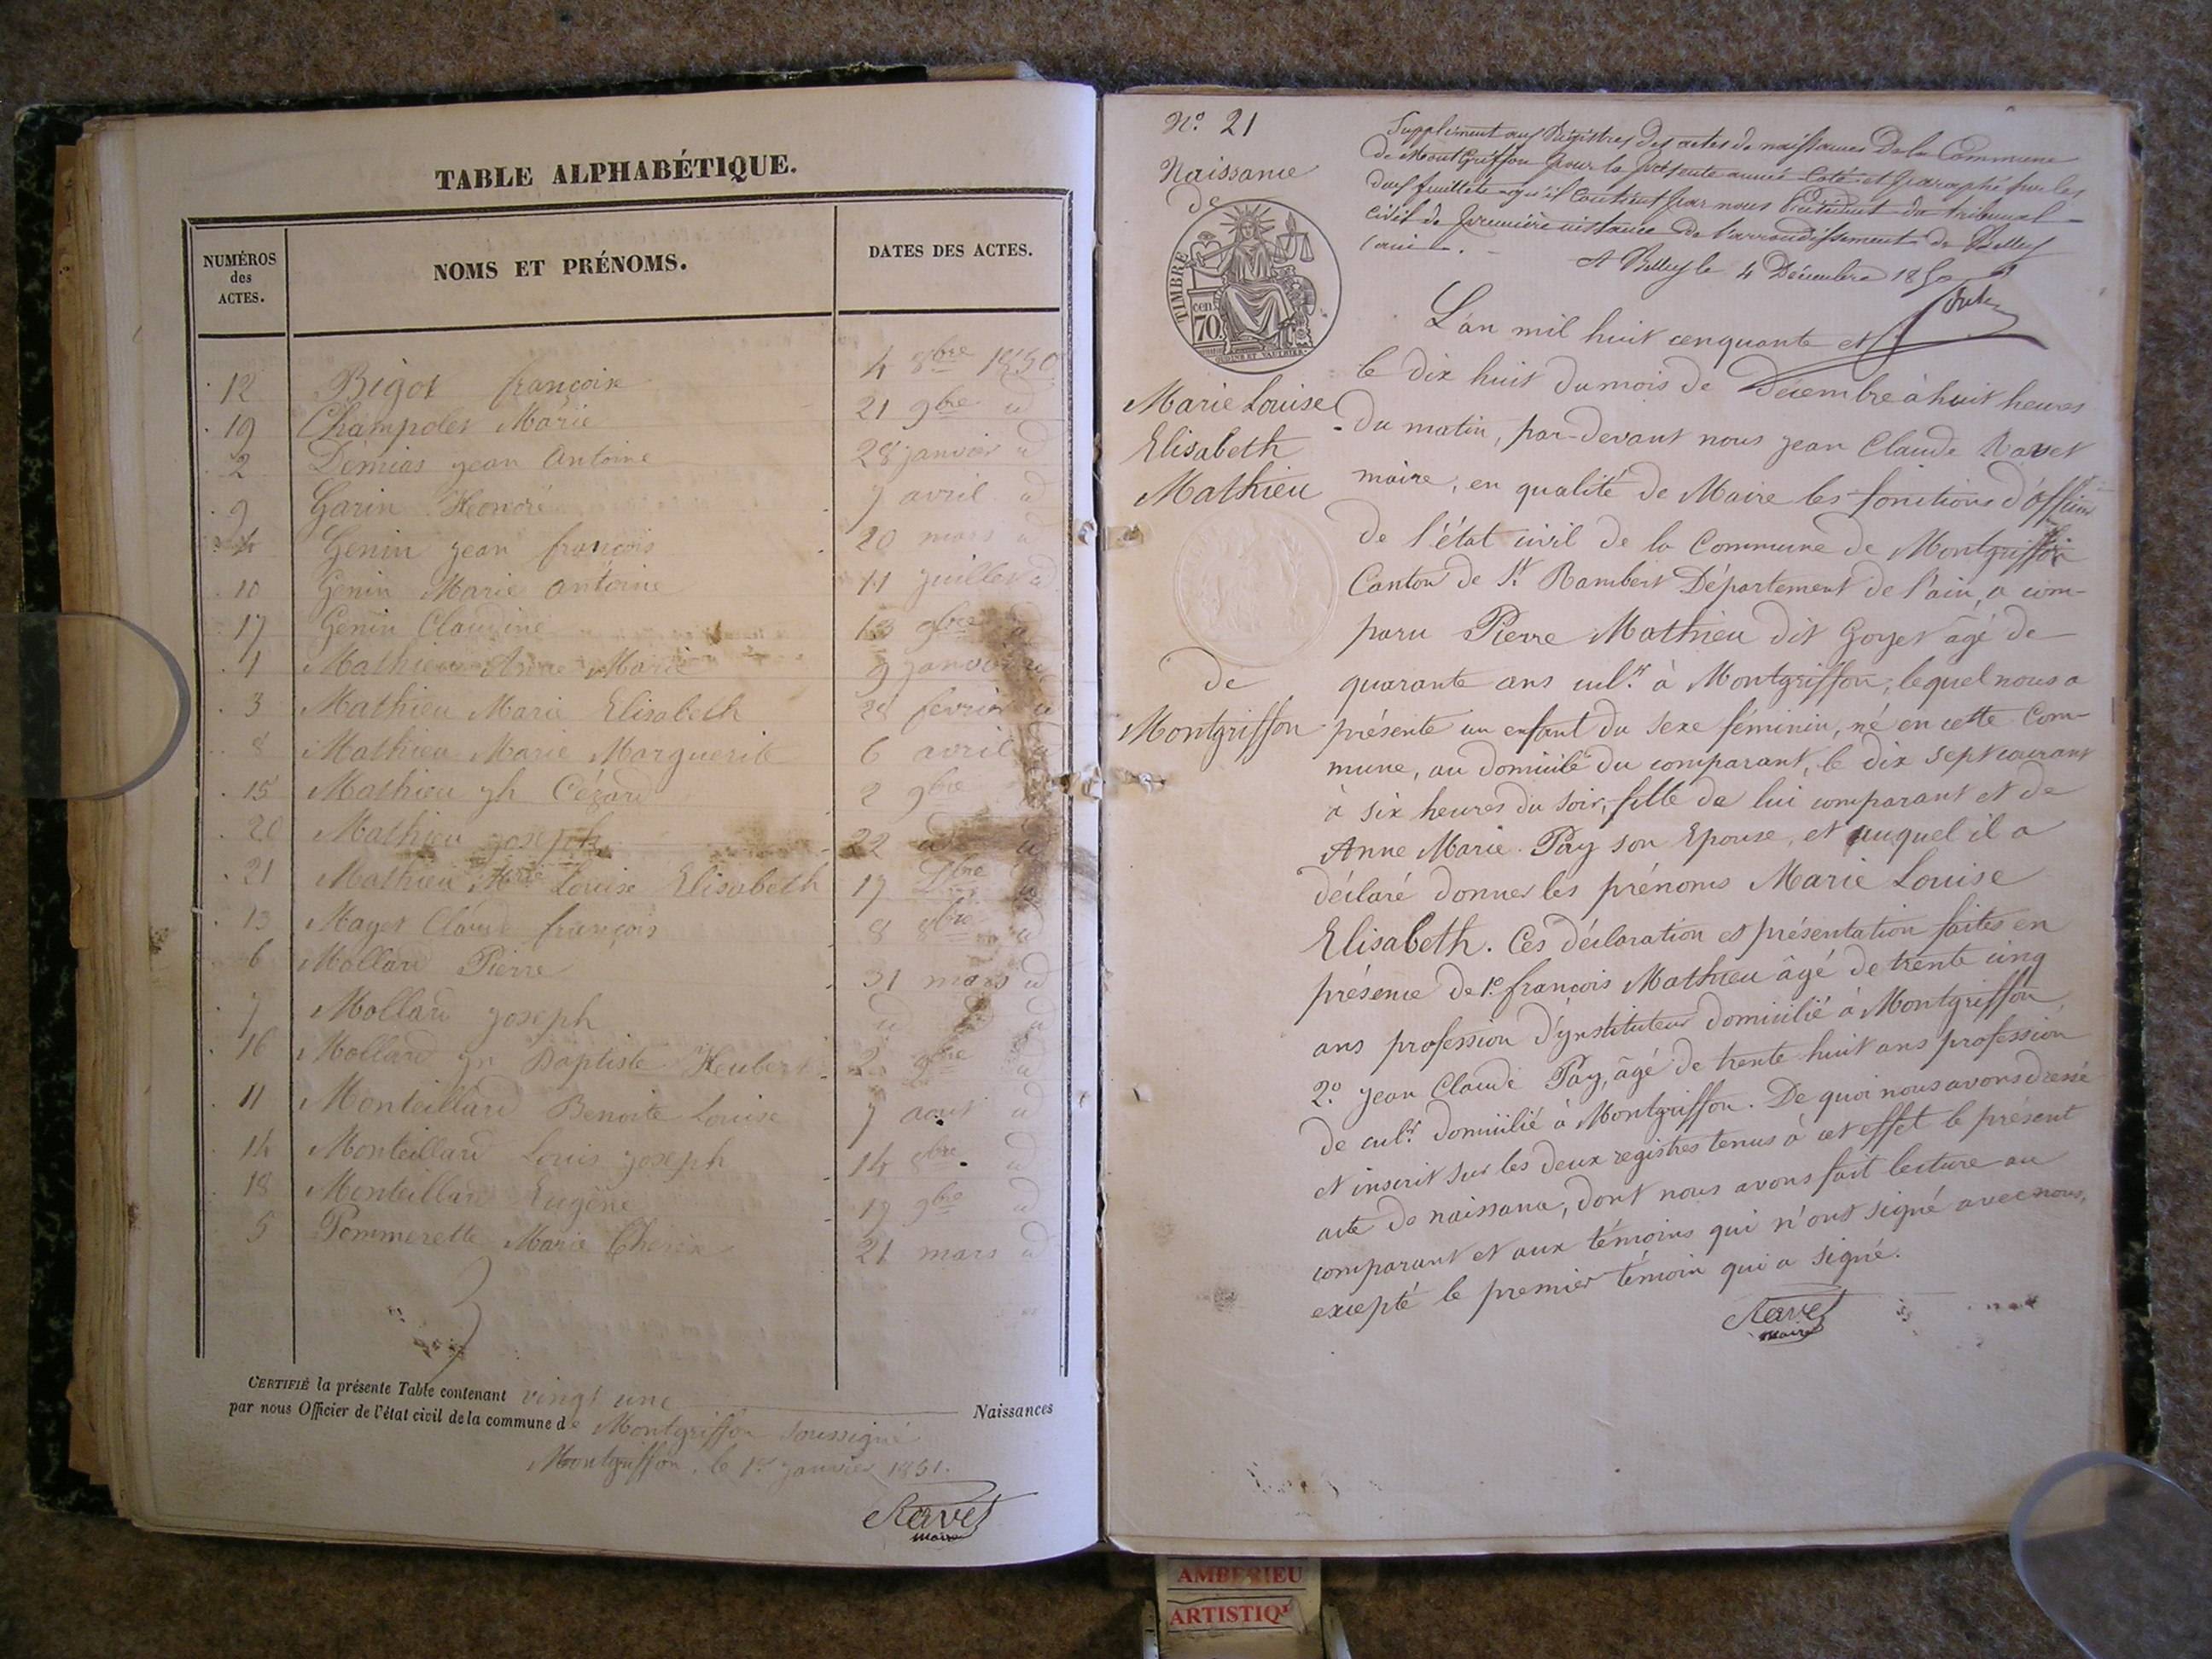 TABLE ALPHABÉTIQUE.
NUMÉROS des ACTES.
NOMS ET PRÉNOMS.
DATES DES ACTES.
12 Bigot françoise 4 8bre 1850
19 Champolet Marie 21 9bre id
2 Démias jean Antoine 28 janvier id
9 Garin Honoré 7 avril id
4 Genin jean françois 20 mars id
10 Genin Marie antoine 11 juillet id
17 Genin Claudine 13 9bre id
1 Mathieu Marie 9 janvier id
3 Mathieu Marie Elisabeth 28 février id
8 Mathieu Marie Marguerite 6 avril id
15 Mathieu jh Cézard 2 9bre id
20 Mathieu joseph 22 id id
21 Mathieu Mrie Louise Elisabeth 17 Dbre id
13 Mayet Claude françois 8 8bre id
6 Mollard Pierre 31 mars id
7 Mollard joseph id id id
16 Mollard jn Baptiste Heubert 2 9bre id
11 Monteillard Benoite Louise 7 aout id
14 Monteillard Louis joseph 14 8bre id
18 Monteillard Eugène 17 9bre id
5 Pommerette Marie Thérèse 21 mars id
CERTIFIÉ la présente Table contenant vingt une Naissances
par nous Officier de l'état civil de la commune de Montgriffon soussigné
Montgriffon, le 1er janvier 1851.
Ravet
maire
No. 21
Naissance
de
TIMBRE
cen. 70
OUDINÉ ET VAUTHIER
Marie Louise
Elisabeth
Mathieu
de
Montgriffon
Supplément aux Régistres des actes de naissances de la Commune
de Montgriffon pour la présente année Coté et paraphé sur les
deux feuillets qu'il contient par nous Président du tribunal
civil de première instance de l'arrondissement de Belley
(ain).
A Belley le 4 Décembre 1850
L'an mil huit cenquante et
le dix huit du mois de Décembre à huit heures
du matin, par-devant nous jean Claude Ravet
maire, en qualité de Maire les fonctions d'officier
de l'état civil de la Commune de Montgriffon
Canton de St Rambert Département de l'ain, a com-
paru Pierre Mathieu dit Goyet âgé de
quarante ans culr à Montgriffon, lequel nous a
présenté un enfant du sexe féminin, né en cette Com-
mune, au domicile du comparant, le dix sept courant
à six heures du soir, fille de lui comparant et de
Anne Marie Pay son Epouse, et auquel il a
déclaré donner les prénoms Marie Louise
Elisabeth. Ces déclaration et présentation faites en
présence de 1o. francois Mathieu âgé de trente cinq
ans profession d'ynstituteur domicilié à Montgriffon
2o. jean Claude Pay, âgé de trente huit ans profession
de culr domicilié à Montgriffon. De quoi nous avons dressé
et inscrit sur les deux registres tenus à cet effet le présent
acte de naissance, dont nous avons fait lecture au
comparant et aux témoins qui n'ont signé avec nous,
excepté le premier témoin qui a signé.
Ravet
maire
AMBERIEU
ARTISTIQ